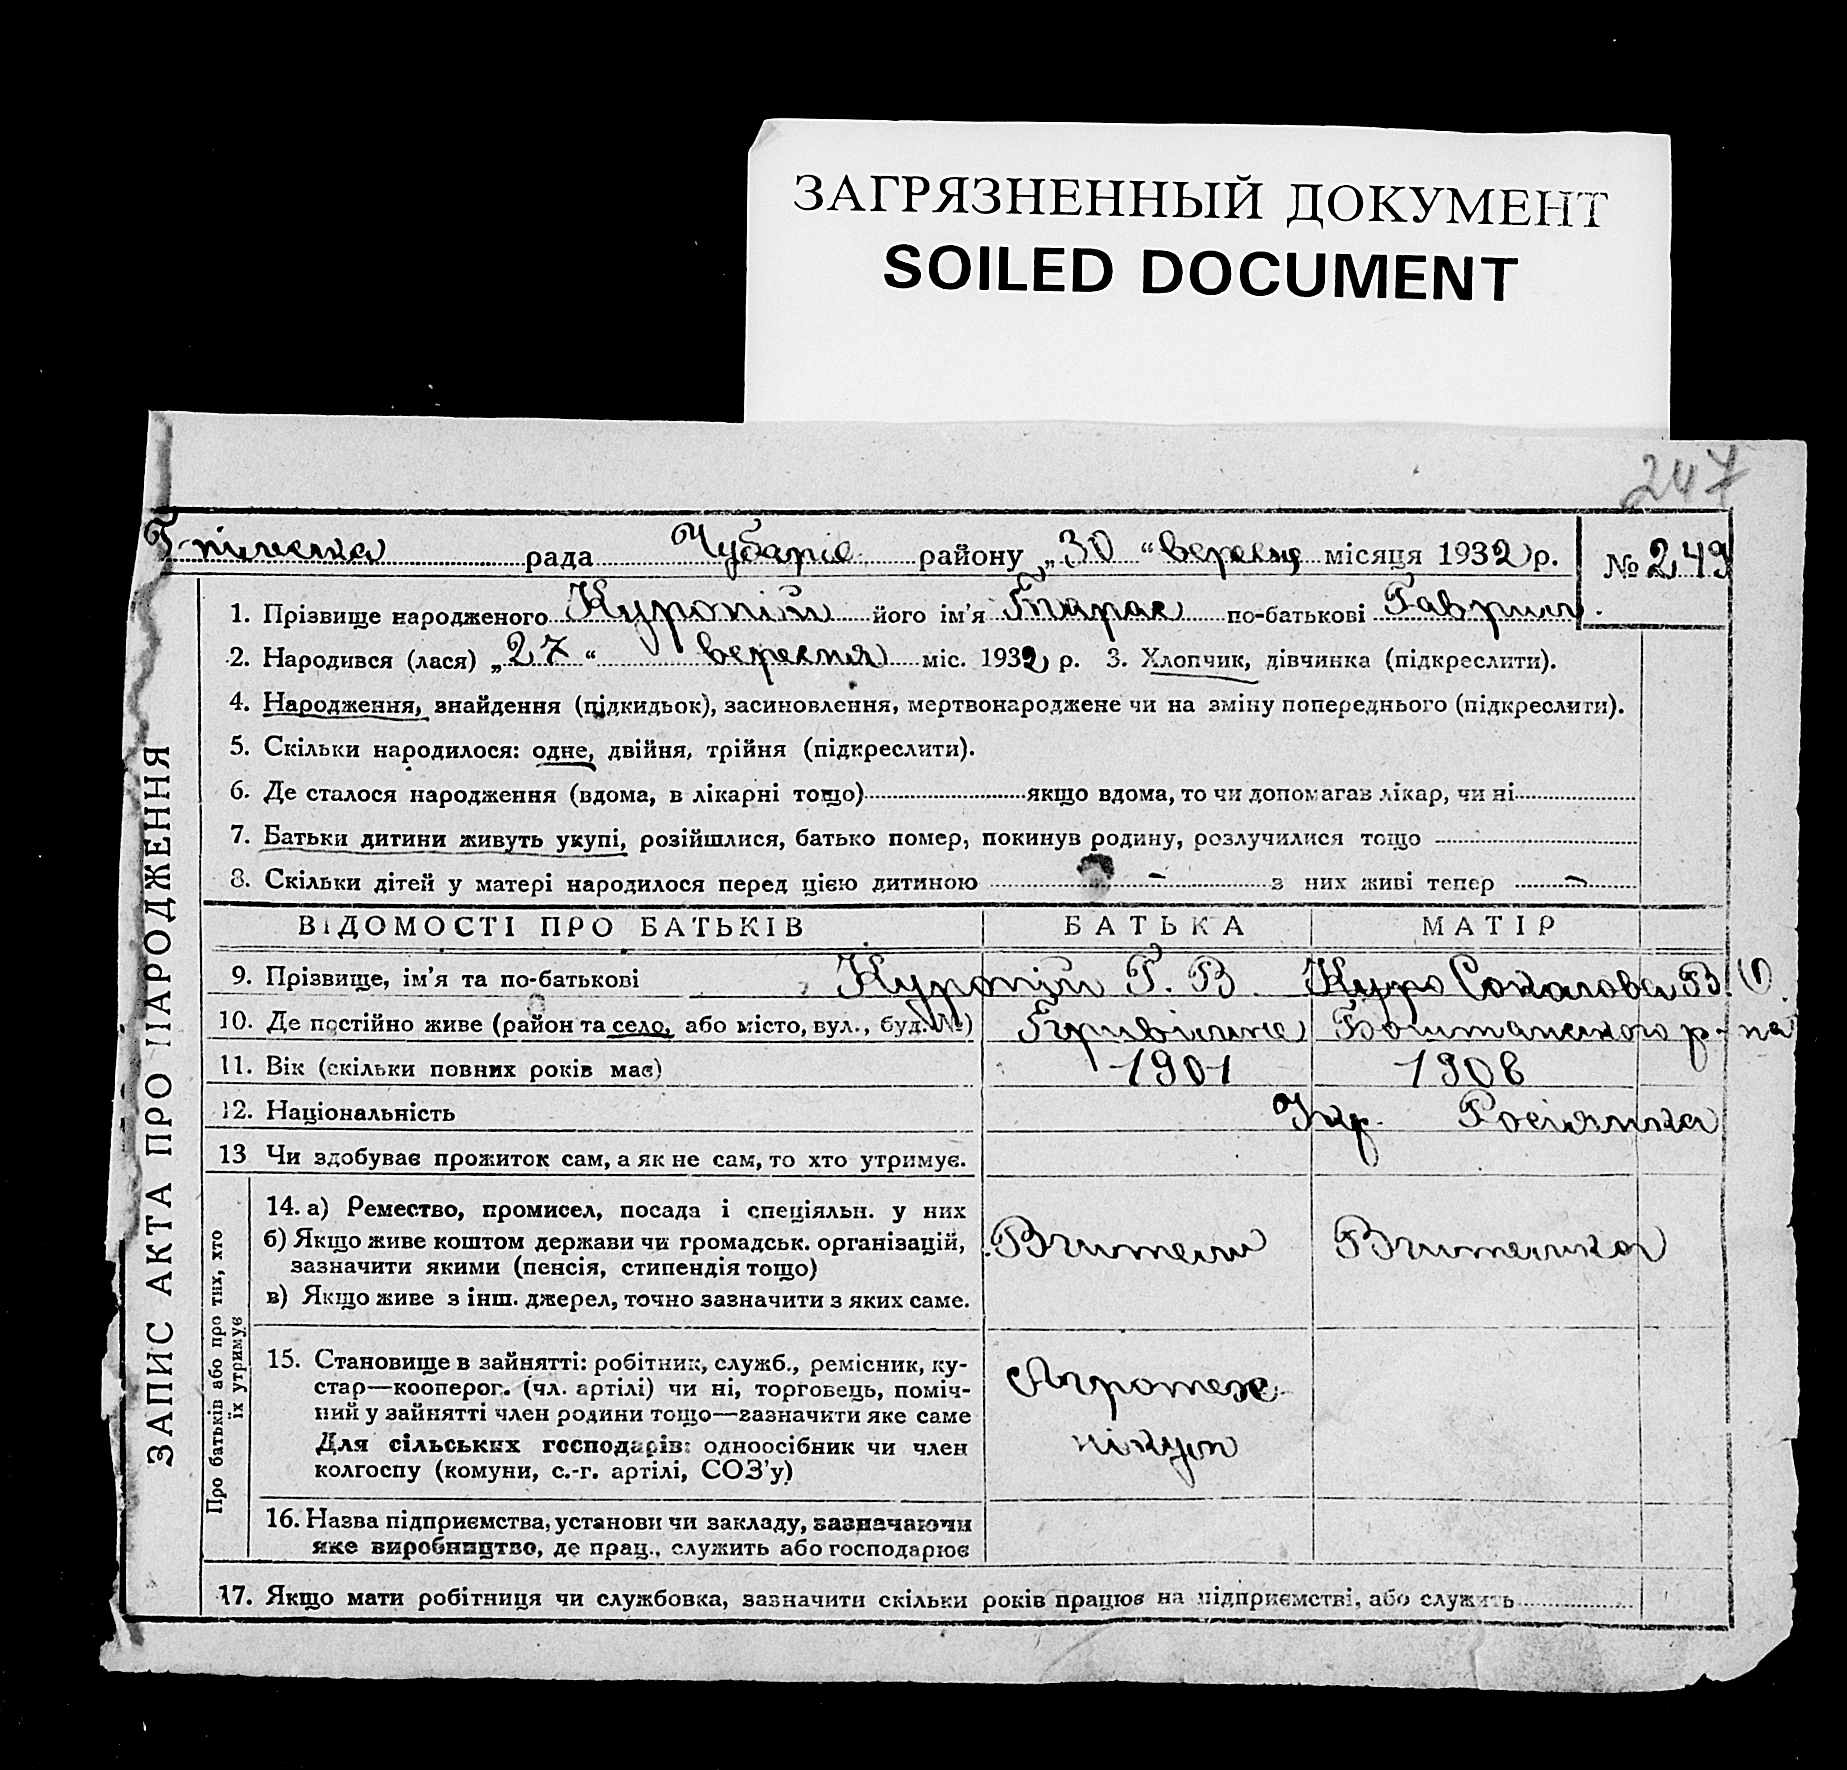 ЗАГРЯЗНЕННЫЙ ДОКУМЕНТ
SOILED DOCUMENT
247
рада Чубарів району „30“ вересня місяця 1932 р. № 249
ЗАПИС АКТА ПРО НАРОДЖЕННЯ
1. Прізвище народженого його ім'я Тарас по-батькові Гаврил.
2. Народився (лася) „27“ вересня міс. 1932 р. 3. Хлопчик, дівчинка (підкреслити).
4. Народження, знайдення (підкидьок), засиновлення, мертвонароджене чи на зміну попереднього (підкреслити).
5. Скільки народилося: одне, двійня, трійня (підкреслити).
6. Де сталося народження (вдома, в лікарні тощо) якщо вдома, то чи допомагав лікар, чи ні
7. Батьки дитини живуть укупі, розійшлися, батько помер, покинув родину, розлучилися тощо
8. Скільки дітей у матері народилося перед цією дитиною - з них живі тепер -
ВІДОМОСТІ ПРО БАТЬКІВ БАТЬКА МАТІР
9. Прізвище, ім'я та по-батькові Г. В.
10. Де постійно живе (район та село, або місто, вул., буд. №) р-на
11. Вік (скільки повних років має) 1901 1908
12. Національність Укр. Росіянка
13 Чи здобуває прожиток сам, а як не сам, то хто утримує.
Про батьків або про тих, хто
їх утримує
14. а) Ремество, промисел, посада і спеціяльн. у них
б) Якщо живе коштом держави чи громадськ. організацій,
зазначити якими (пенсія, стипендія тощо)
в) Якщо живе з інш. джерел, точно зазначити з яких саме.
Вчитель Вчителька
15. Становище в зайнятті: робітник, служб., ремісник, ку-
стар—кооперог. (чл. артілі) чи ні, торговець, поміч-
ний у зайнятті член родини тощо—зазначити яке саме
Для сільських господарів: одноосібник чи член
колгоспу (комуни, с.-г. артілі, СОЗ'у)
Агротех
нікум
16. Назва підприємства, установи чи закладу, зазначаючи
яке виробництво, де прац., служить або господарює
17. Якщо мати робітниця чи службовка, зазначити скільки років працює на підприємстві, або служить